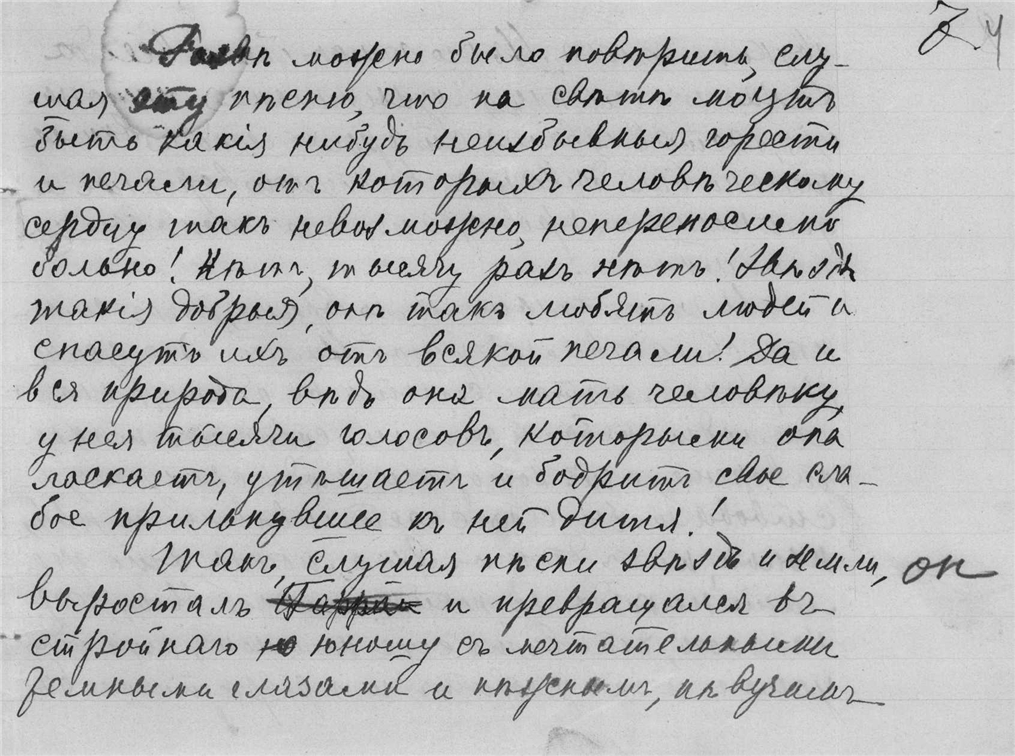 7. 4
Развѣ можно было повѣрить, слу-
шая эту пѣсню, что на свѣтѣ могутъ
быть какія нибудь неизбывныя горести
и печали, отъ которыхъ человѣческому
сердцу такъ невозможно, непереносимо
больно! Нѣтъ, тысячу разъ нѣтъ! Звѣзды
такія добрыя, онѣ такъ любятъ людей и
спасутъ ихъ отъ всякой печали! Да и
вся природа, вѣдь она мать человѣку,
у нея тысячи голосовъ, которыми она
ласкаетъ, утѣшаетъ и бодритъ свое сла-
бое прильнувшее къ ней дитя!
Такъ, слушая пѣсни звѣздъ и земли, он
выросталъ и превращался въ
стройнаго ю юношу съ мечтательными
темными глазами и нѣжнымъ, пѣвучимъ